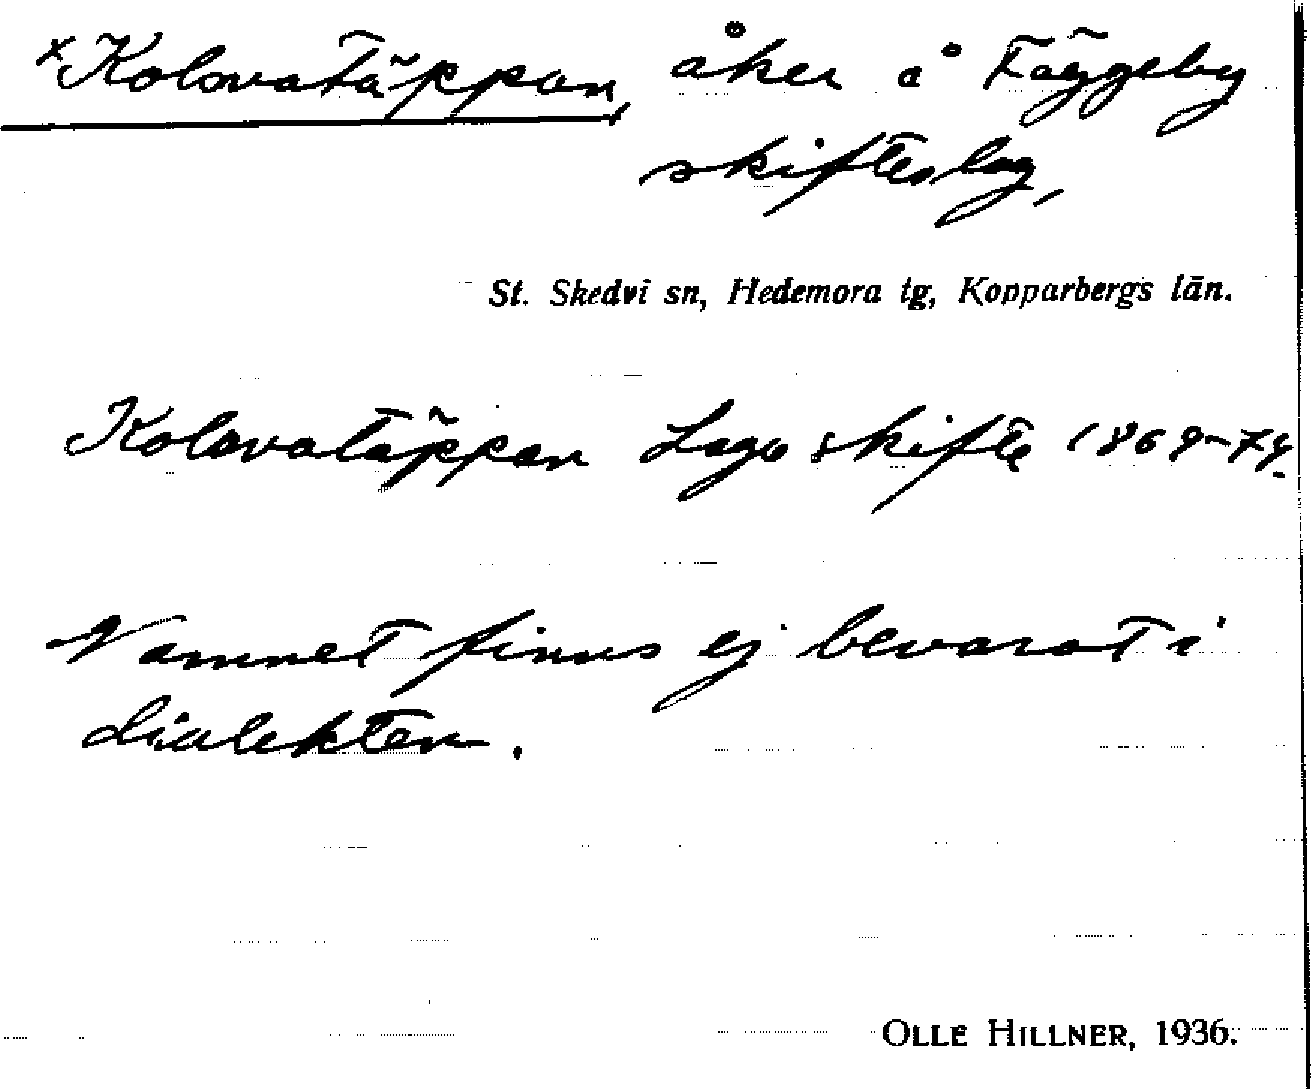 ×Kolovatäppan, åker å Fäggeby
skifteslag,
St. Skedvi sn, Hedemora tg, Kopparbergs län.
Kolovatäppan Laga skifte 1869-74.
Namnet finns ej bevarat i
dialekten.
OLLE HILLNER, 1936.